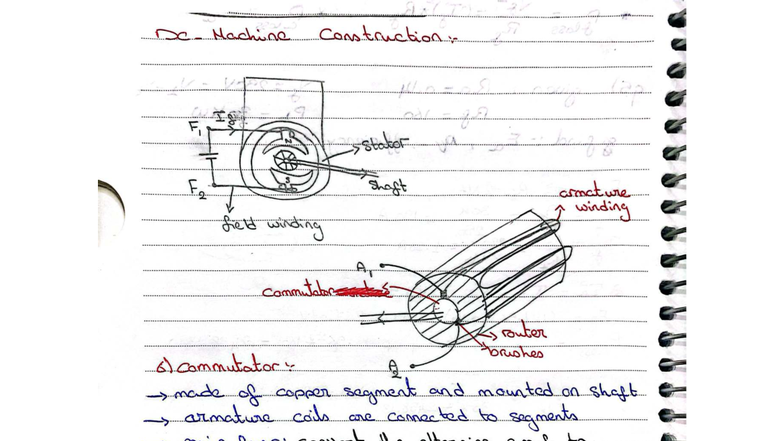 DC-Machine Construction:-
F1
If
N
S
stator
shaft
F2
field winding
armature
winding
A1
commutator
router
brushes
A2
6) commutator:-
→ made of copper segment and mounted on shaft
→ armature coils are connected to segments